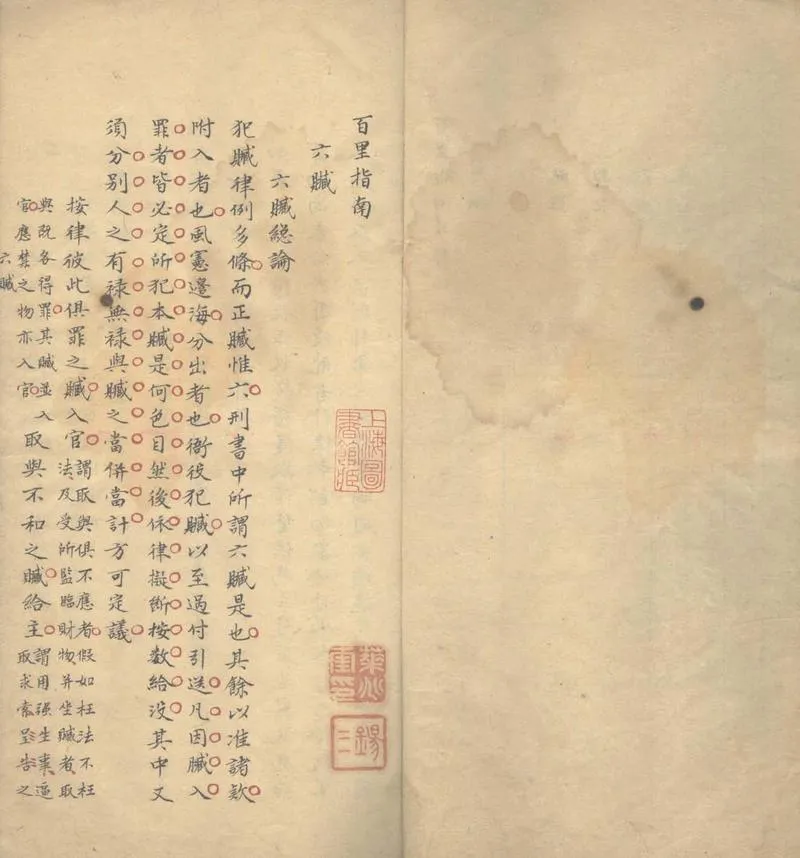 百里指南
六贓
六贓總論
犯贓律例多條而正贓惟六刑書中所謂六贓是也其餘以准諸欵
附入者也風憲邊海分出者也衙役犯贓以至過付引送凡因贓入
罪者皆必定所犯本贓是何色目然後依律擬斷按數給没其中又
須分别人之有禄無禄與贓之當併當計方可定議
按律彼此俱罪之贓入官
謂取與俱不應者假如枉法不枉
法及受所監臨財物并坐贓者取
與既各得罪其贓並入
官應禁之物亦入官
取與不和之贓給主
謂用强生事逼
取求索呈告之
六贓
上海圖書館藏
錫三